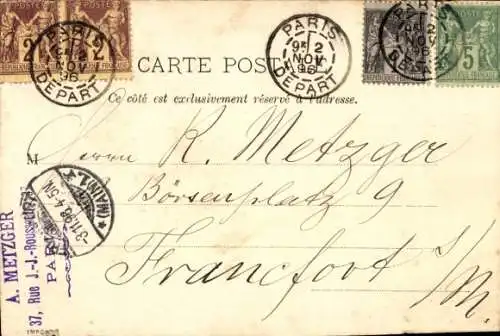 POSTE POSTE
2
2
PARIS
2
NOV
96
DEPART
PARIS
9E 2
NOV
96
DEPART
PARIS
2
NOV
96
DEPART
5
CARTE POST
Ce côté est exclusivement réservé à l'adresse.
M Herrn R. Metzger
Börsenplatz 9
Francfort s/M.
(MAIN) * 1
-3.11.96. 4-5N
A. METZGER
37, Rue J.-J.-Rousseau
PARIS